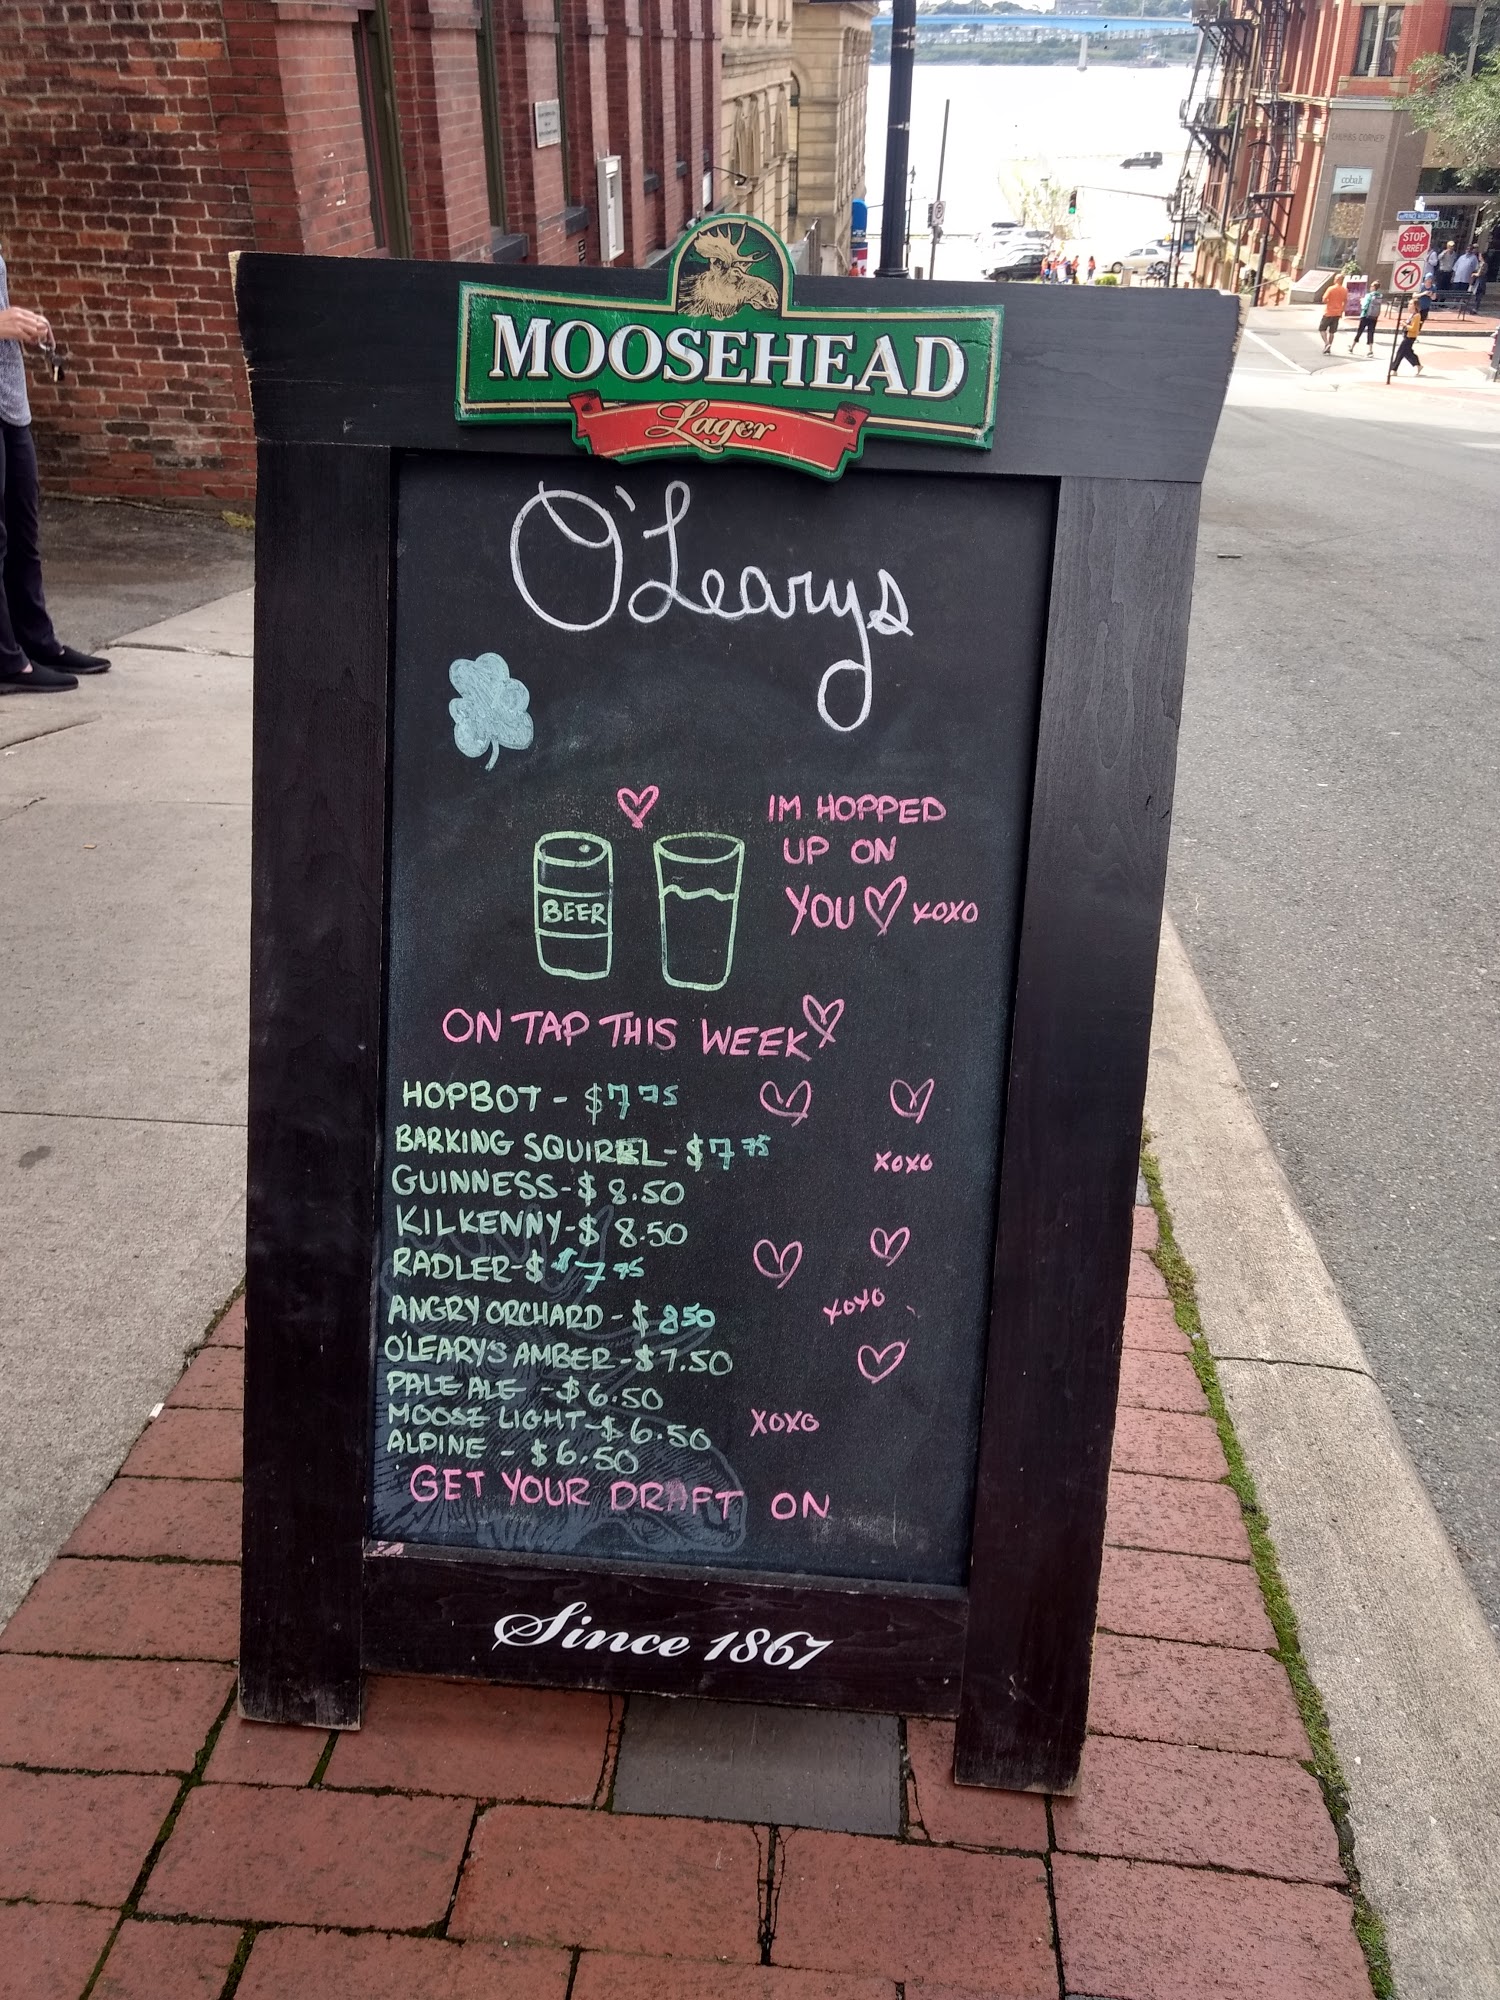 MOOSEHEAD
Lager
O'Learys
IM HOPPED
UP ON
YOU XOXO
BEER
ON TAP THIS WEEK
HOPBOT - $7 75
BARKING SQUIRREL - $7 75
XOXO
GUINNESS - $ 8.50
KILKENNY - $ 8.50
RADLER - $ $7 75
ANGRY ORCHARD - $ 850
XOXO
O'LEARY'S AMBER - $7.50
PALE ALE - $6.50
MOOSE LIGHT - $6.50
XOXO
ALPINE - $6.50
GET YOUR DRAFT ON
Since 1867
CHUBBS CORNER
cobalt
cobalt
PRINCE WILLIAM
STOP
ARRÊT